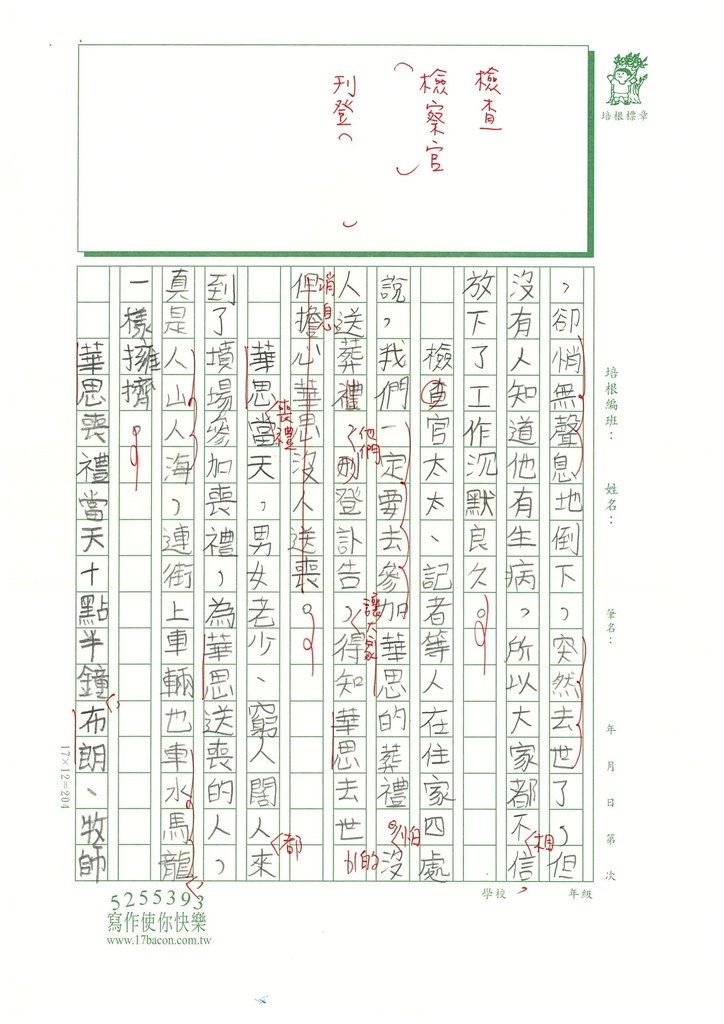 檢查
檢察官
（　）
刊登（　）
培根標章
培根編班：　姓名：　筆名：　年　月　日　第　次
，卻悄無聲息地倒下，突然去世了，但
沒有人知道他有生病，所以大家都不信
相
，
放下了工作沉默良久。
檢查官太太、記者等人在住家四處
說，我們一定要去參加華思的葬禮沒
。怕
人送葬禮，刑登訃告，得知華思去世
他們
讓大家
的
消息
但擔心華思沒人送喪。
華思當天，男女老少、窮人闊人來
喪禮
都
到了墳場參加喪禮，為華思送喪的人，
真是人山人海，連街上車輛也車水馬龍
，
一樣擁擠。
華思喪禮當天十點半鐘布朗、牧師
，
17×12=204
學校　年級
5255393
寫作使你快樂
www.17bacon.com.tw